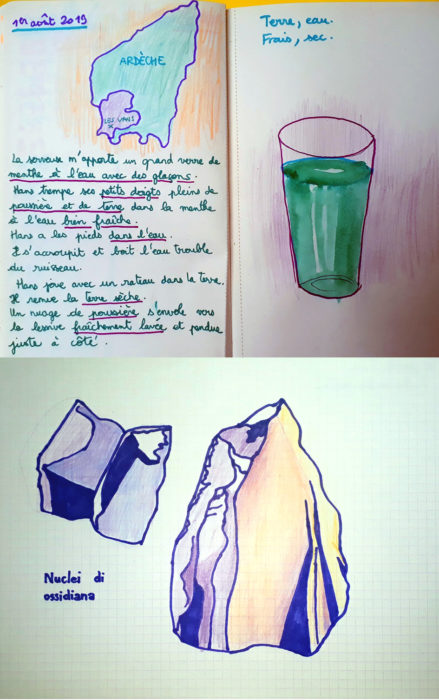 1er août 2019
ARDÈCHE
LES VANS
La serveuse m'apporte un grand verre de
menthe et l'eau avec des glaçons.
Hans trempe ses petits doigts pleins de
poussière et de terre dans la menthe
à l'eau bien fraîche.
Hans a les pieds dans l'eau.
Il s'accroupit et boit l'eau trouble
du ruisseau.
Hans joue avec un rateau dans la terre.
Il remue la terre sèche.
Un nuage de poussière s'envole vers
la lessive fraîchement lavée et pendue
juste à côté.
Terre, eau.
Frais, sec.
Nuclei di
ossidiana